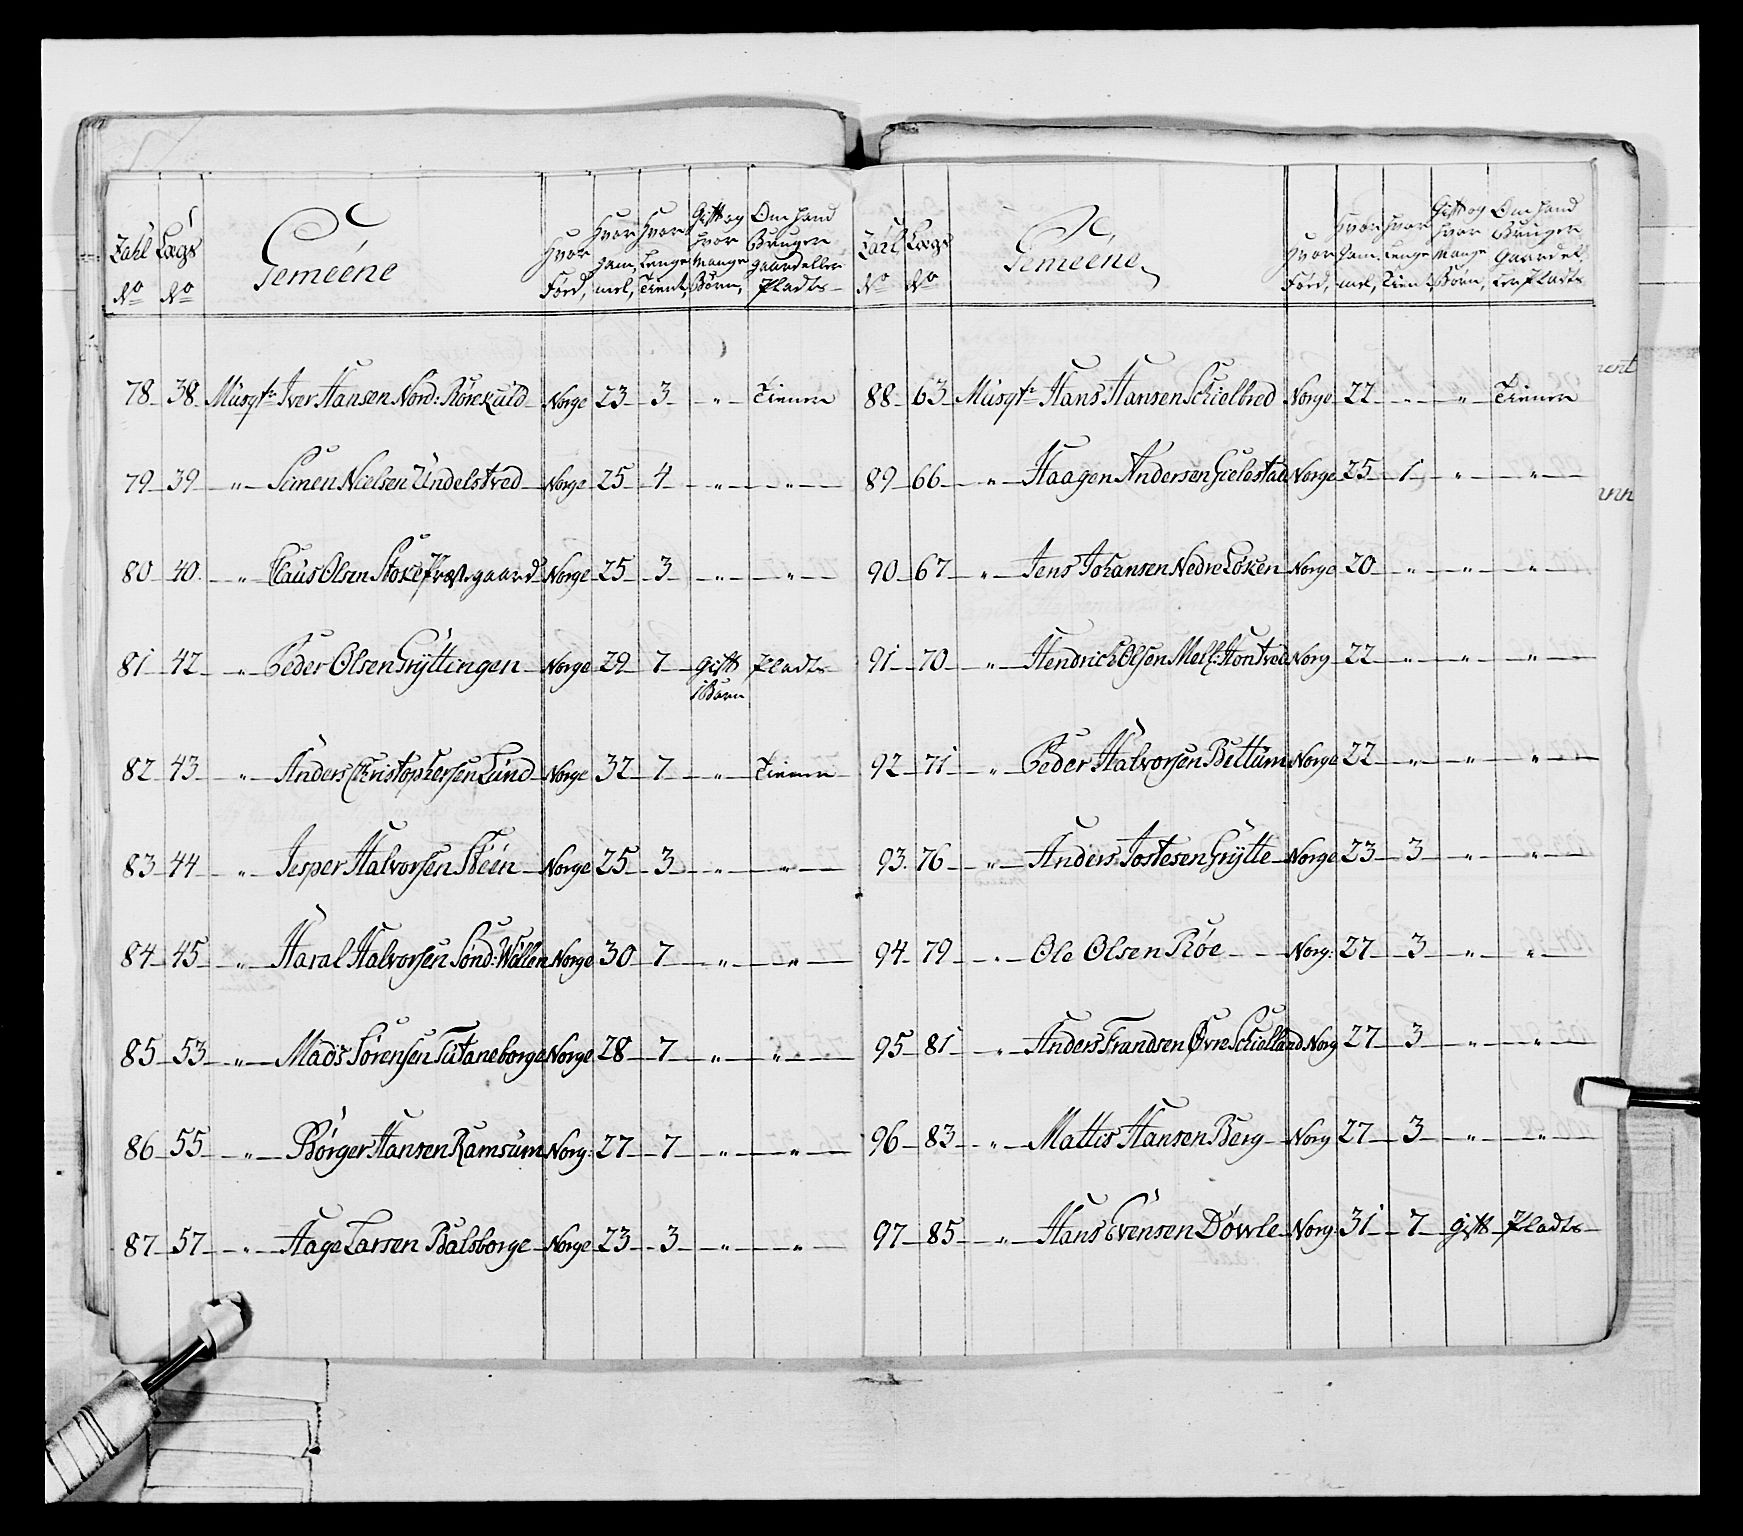 Zahl No Lægs No Gemeéne Hvor Föed, Hvor Gam̄el, Hvor Længe Tient, Gift og Hvor Mange Börn, Om Hand Bruger Gaard eller Pladts
78 38 Musqt: Iver Hansen Nord: Rörekuld Norge 23 3 " Tiener
79 39 " Simen Nielsen Undelstved Norge 25 4 " "
80 40 " Claus Olsen Stoke Præstgaard Norge 25 3 " "
81 42 " Peder Olsen Gryttingen Norge 29 7 Gift 1 Barn Pladts
82 43 " Anders Christophersen Lund Norge 32 7 " Tiener
83 44 " Jesper Halvorsen Steén Norge 25 3 " "
84 45 " Haral Halvorsen Sönd: Wollen Norge 30 7 " "
85 53 " Mads Sörensen Tutaneborge Norge 28 7 " "
86 55 " Börger Hansen Ramsum Norg: 27 7 " "
87 57 " Aage Larsen Balsborge Norge 23 3 " "
Zahl No Lægs No Gemeéne Hvor Föed, Hvor Gam̄el, Hvor Længe Tient, Gift og Hvor Mange Börn, Om Hand Bruger Gaard eller Pladts
88 63 Musqt: Hans Hansen Schielbred Norge 22 " " Tiener
89 66 " Haagen Andersen Gielestad Norge 25 1 " "
90 67 " Jens Johansen Nedre Löken Norge 20 " " "
91 70 " Hendrich Olsen Mell: Hontved Norg 22 " " "
92 71 " Peder Halvorsen Bettum Norge 22 " " "
93 76 " Anders Jostesen Grytte Norge 23 3 " "
94 79 " Ole Olsen Röe Norg: 27 3 " "
95 81 " Anders Frandsen Øvre Schielland Norg 27 3 " "
96 83 " Mattis Hansen Berg Norg 27 3 " "
97 85 " Hans Evensen Döwle Norg: 31 7 Gift Pladts